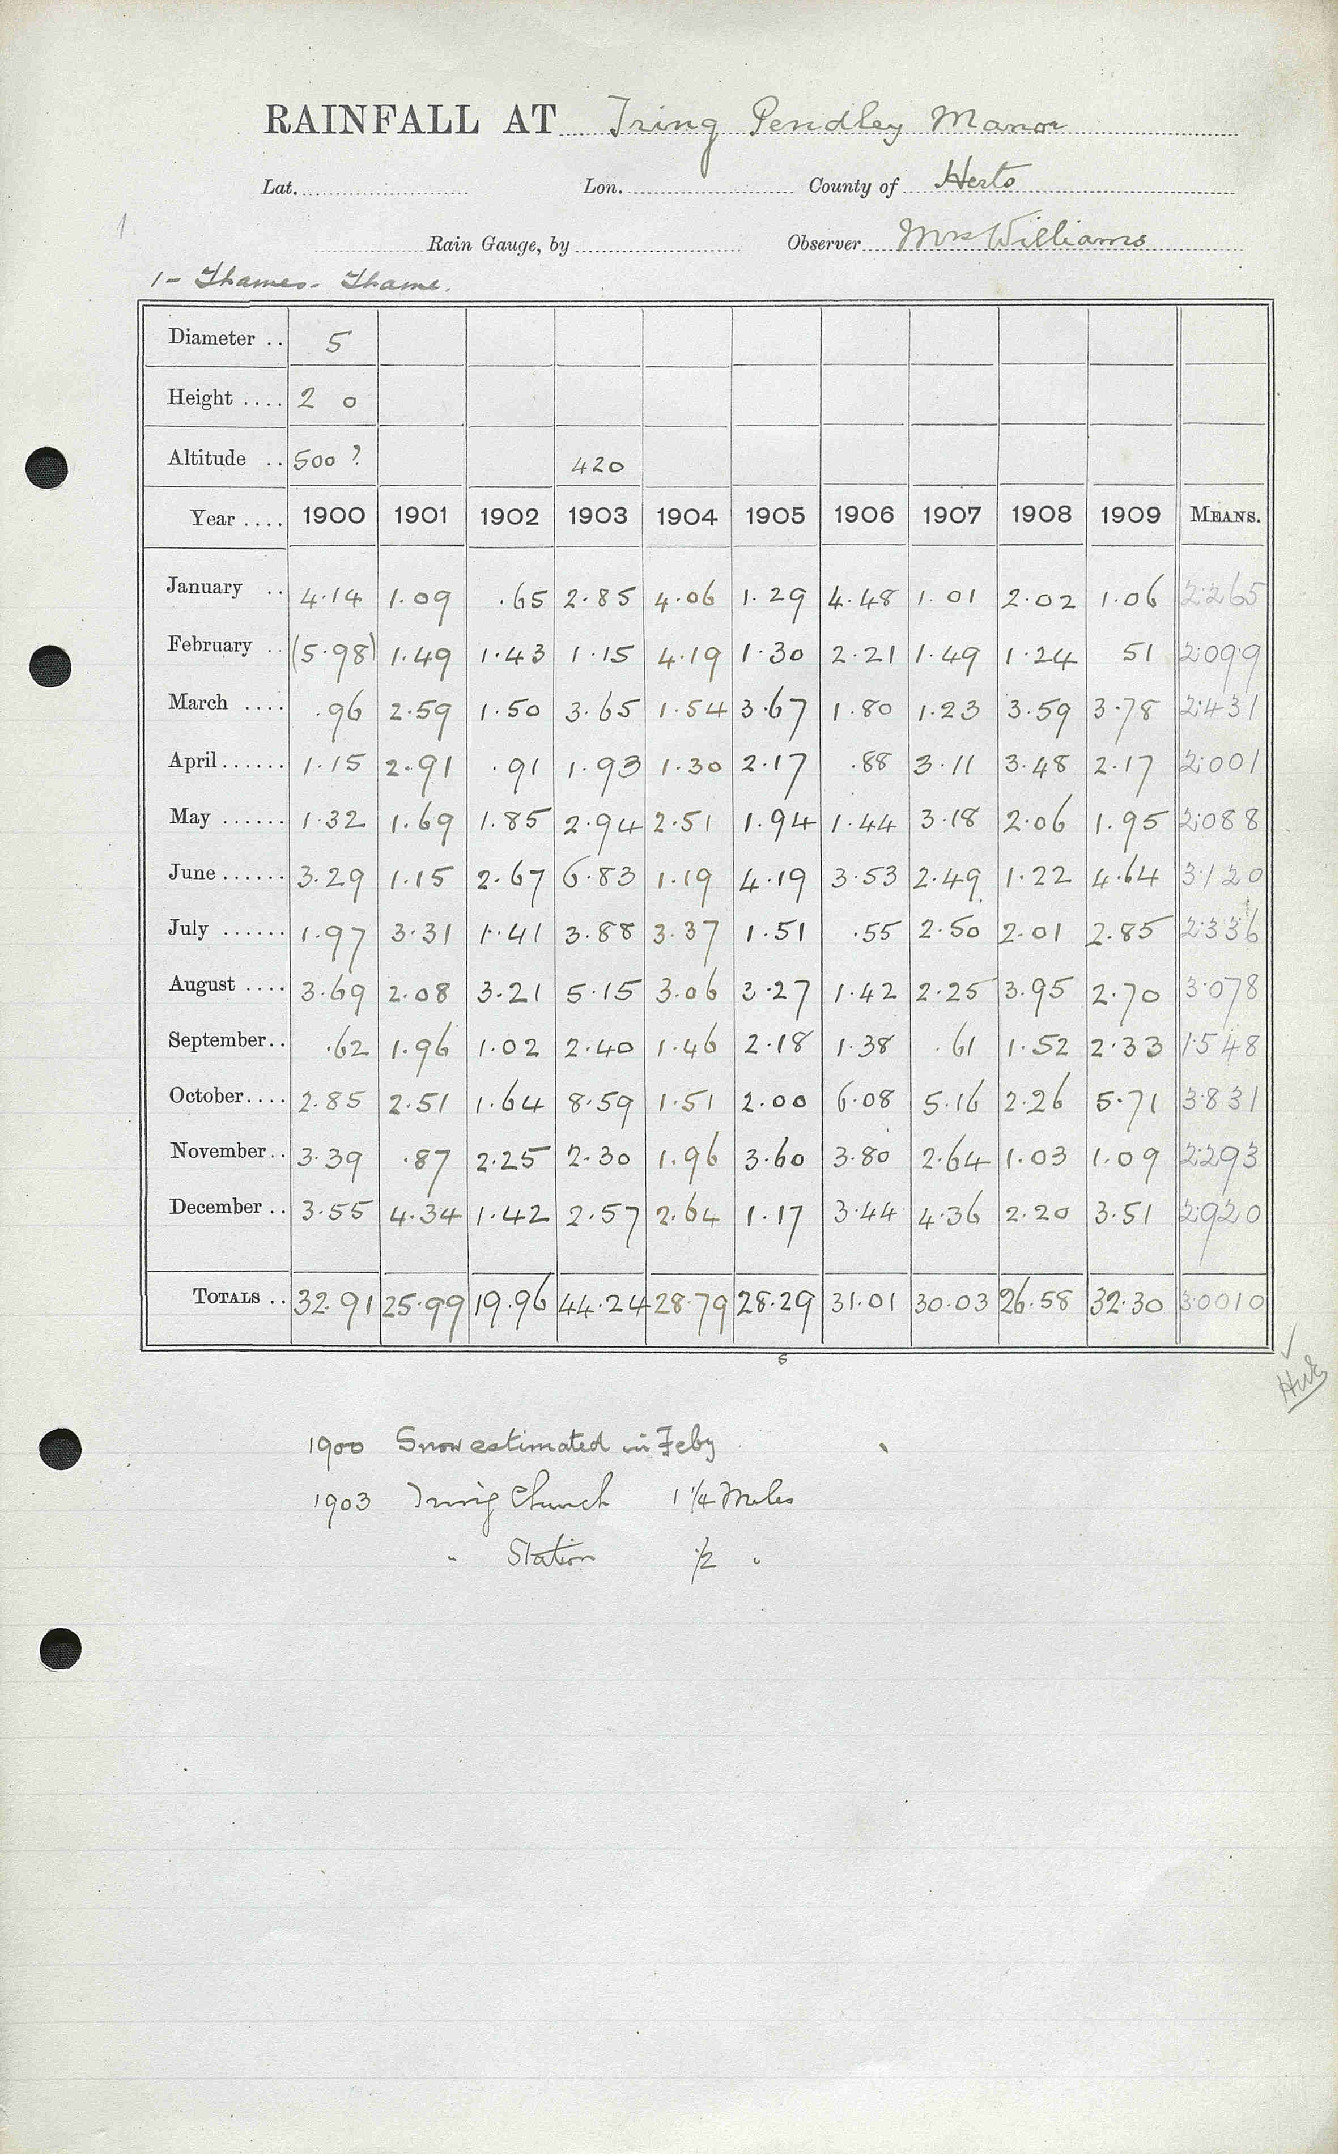 RAINFALL AT Tring Pendley Manor
Lat. Lon. County of Herts
1
Rain Gauge, by Observer Mrs Williams
1 - Thames - Thame.
Diameter .. 5
Height .... 2 0
Altitude .. 500 ? 420
Year .... 1900 1901 1902 1903 1904 1905 1906 1907 1908 1909 MEANS.
January .. 4.14 1.09 .65 2.85 4.06 1.29 4.48 1.01 2.02 1.06 2.265
February .. (5.98) 1.49 1.43 1.15 4.19 1.30 2.21 1.49 1.24 51 2.099
March .... .96 2.59 1.50 3.65 1.54 3.67 1.80 1.23 3.59 3.78 2.431
April ...... 1.15 2.91 .91 1.93 1.30 2.17 .88 3.11 3.48 2.17 2.001
May ...... 1.32 1.69 1.85 2.94 2.51 1.94 1.44 3.18 2.06 1.95 2.088
June ...... 3.29 1.15 2.67 6.83 1.19 4.19 3.53 2.49 1.22 4.64 3.120
July ...... 1.97 3.31 1.41 3.88 3.37 1.51 .55 2.50 2.01 2.85 2.336
August .... 3.69 2.08 3.21 5.15 3.06 3.27 1.42 2.25 3.95 2.70 3.078
September .. .62 1.96 1.02 2.40 1.46 2.18 1.38 .61 1.52 2.33 1.548
October .... 2.85 2.51 1.64 8.59 1.51 2.00 6.08 5.16 2.26 5.71 3.831
November .. 3.39 .87 2.25 2.30 1.96 3.60 3.80 2.64 1.03 1.09 2.293
December .. 3.55 4.34 1.42 2.57 2.64 1.17 3.44 4.36 2.20 3.51 2.920
TOTALS .. 32.91 25.99 19.96 44.24 28.79 28.29 31.01 30.03 26.58 32.30 30.010
s
1900 Snow estimated in Feby
1903 Tring Church 1 1/4 Miles
" Station 1/2 "